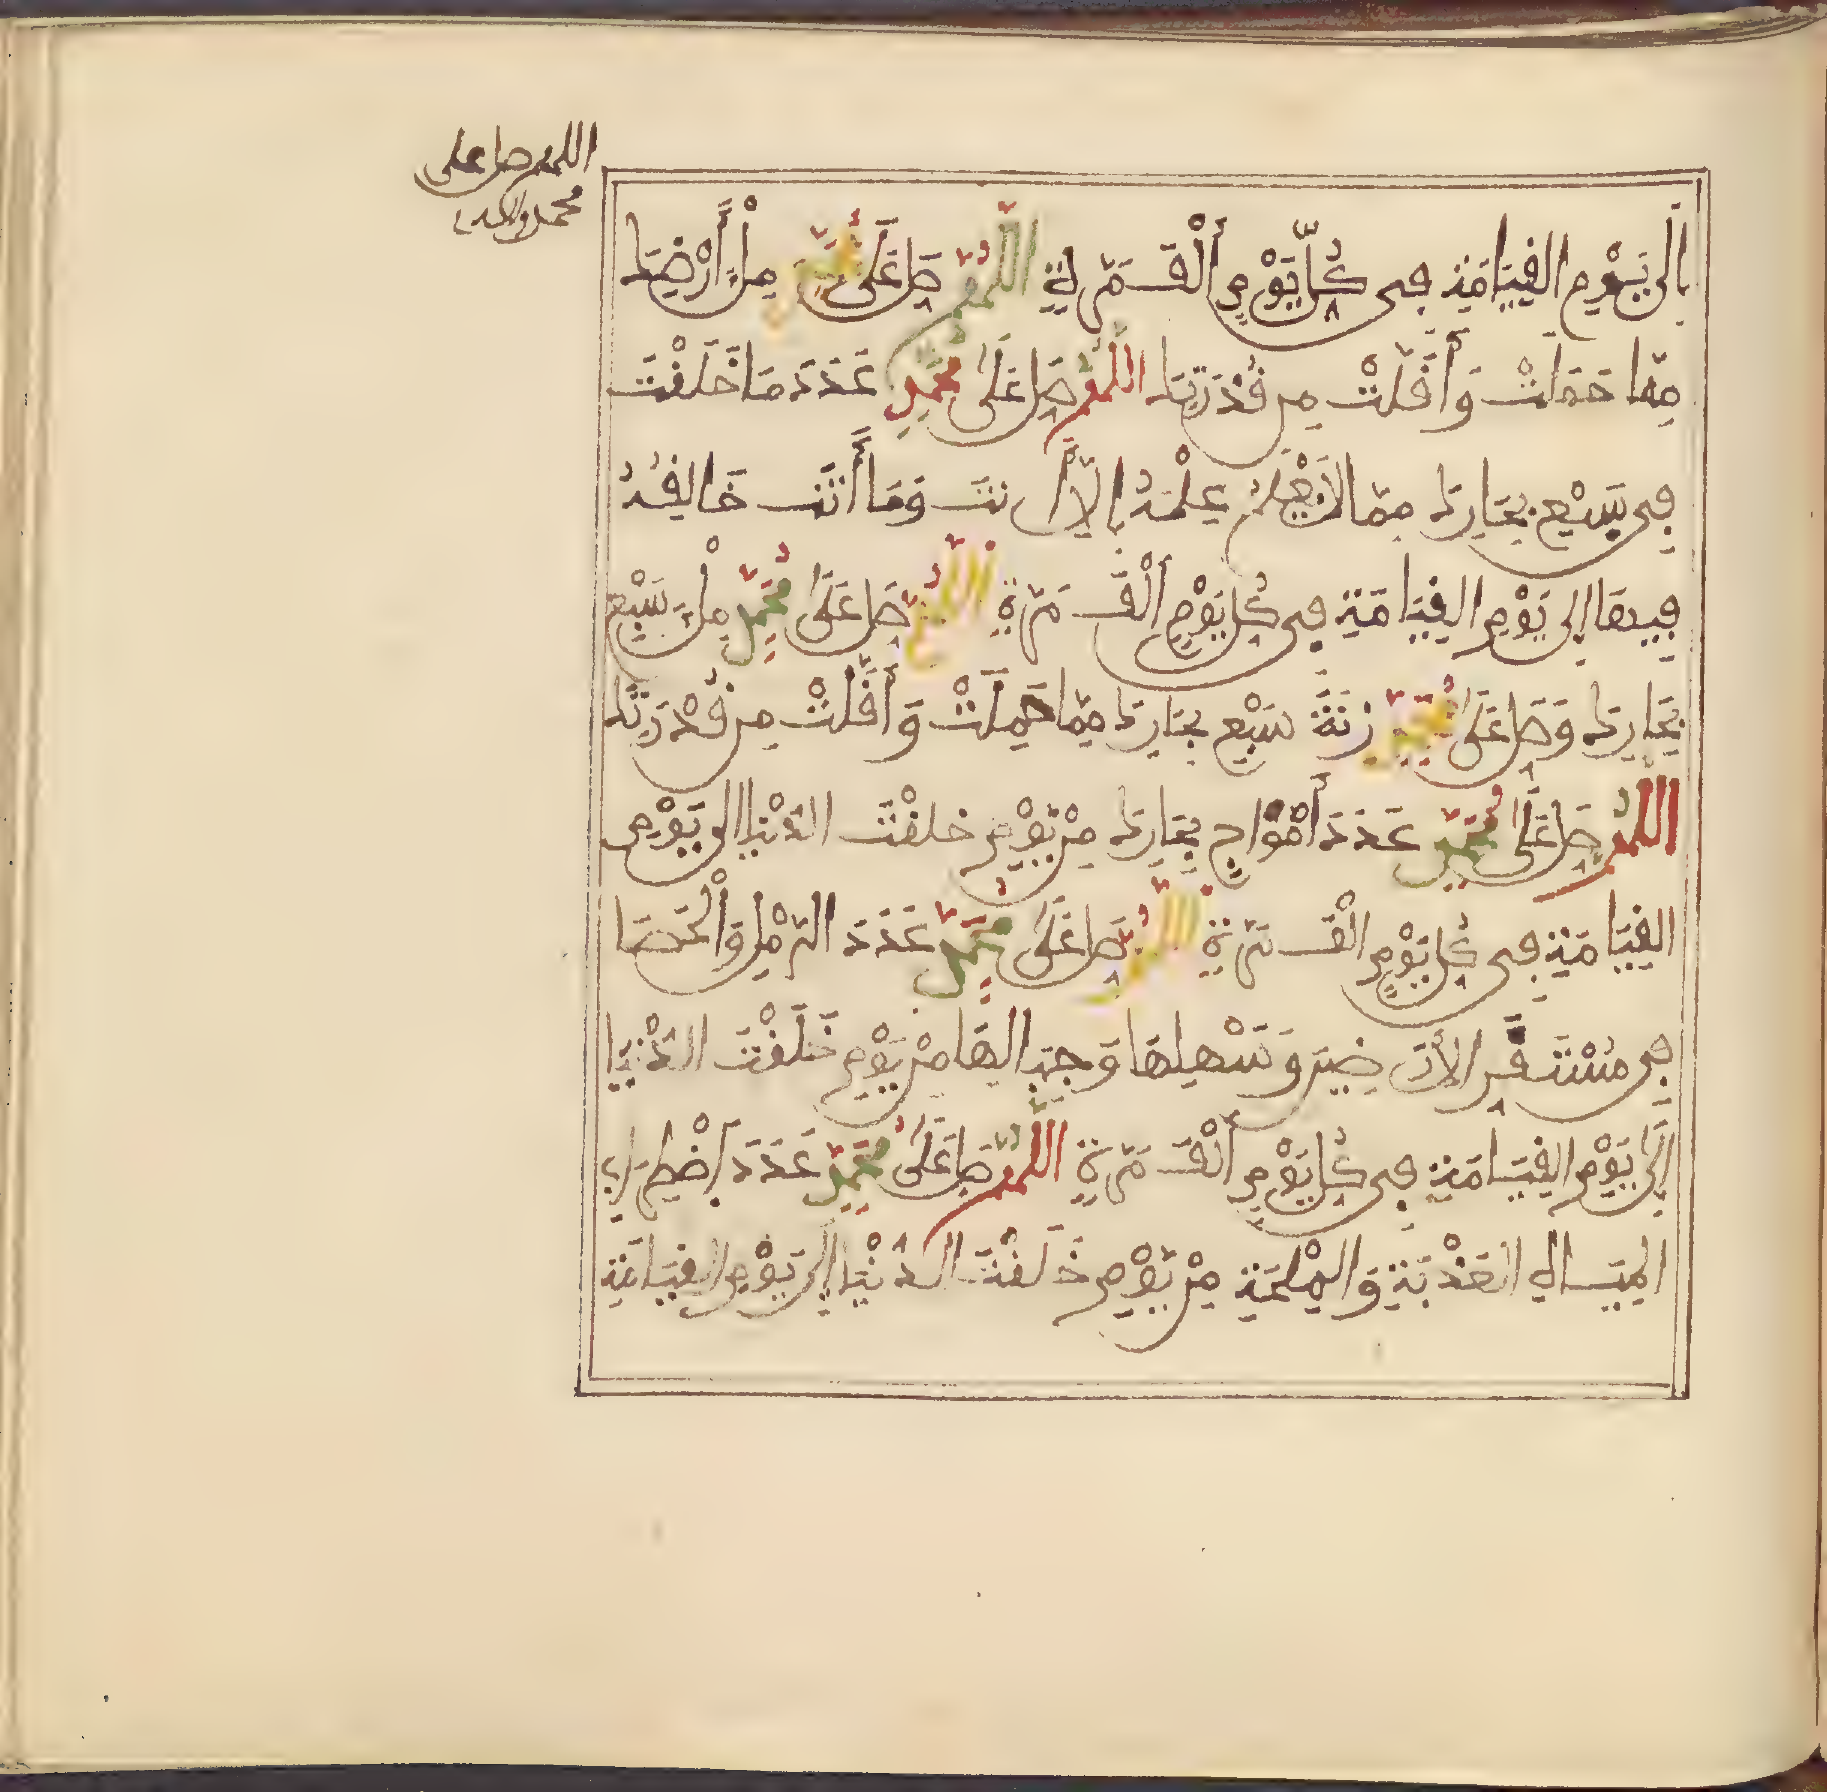 اللهم صل على
محمد واله
إِلَى يَوْمِ الْقِيَامَةِ فِي كُلِّ يَوْمٍ أَلْفَ مَرَّةٍ اللَّهُمَّ صَلِّ عَلَى مُحَمَّدٍ مِلْءَ أَرْضِكَ
مِمَّا حَمَلَتْ وَأَقَلَّتْ مِن قُدْرَتِكَ اللَّهُمَّ صَلِّ عَلَى مُحَمَّدٍ عَدَدَ مَا خَلَقْتَ
فِي سَبْعِ بِحَارِكَ مِمَّا لَا يَعْلَمُ عِلْمَهُ إِلَّا أَنتَ وَمَا أَنْتَ خَالِقُهُ
فِيهَا إِلَى يَوْمِ الْقِيَامَةِ فِي كُلِّ يَوْمٍ أَلْفَ مَرَّةٍ اللَّهُمَّ صَلِّ عَلَى مُحَمَّدٍ مِلْءَ سَبْعِ
بِحَارِكَ وَصَلِّ عَلَى مُحَمَّدٍ زِنَةَ سَبْعِ بِحَارِكَ مِمَّا حَمَلَتْ وَأَقَلَّتْ مِن قُدْرَتِكَ
اللَّهُمَّ صَلِّ عَلَى مُحَمَّدٍ عَدَدَ أَمْوَاجِ بِحَارِكَ مِنْ يَوْمِ خَلَقْتَ الدُّنْيَا إِلَى يَوْمِ
الْقِيَامَةِ فِي كُلِّ يَوْمٍ أَلْفَ مَرَّةٍ اللَّهُمَّ صَلِّ عَلَى مُحَمَّدٍ عَدَدَ الرَّمْلِ وَالْحَصَا
فِي مُسْتَقَرِّ الْأَرَضِينَ وَسَهْلِهَا وَجِبَالِهَا مِنْ يَوْمِ خَلَقْتَ الدُّنْيَا
إِلَى يَوْمِ الْقِيَامَةِ فِي كُلِّ يَوْمٍ أَلْفَ مَرَّةٍ اللَّهُمَّ صَلِّ عَلَى مُحَمَّدٍ عَدَدَ اضْطِرَابِ
الْمِيَاهِ الْعَذْبَةِ وَالْمِلْحَةِ مِنْ يَوْمِ خَلَقْتَ الدُّنْيَا إِلَى يَوْمِ الْقِيَامَةِ